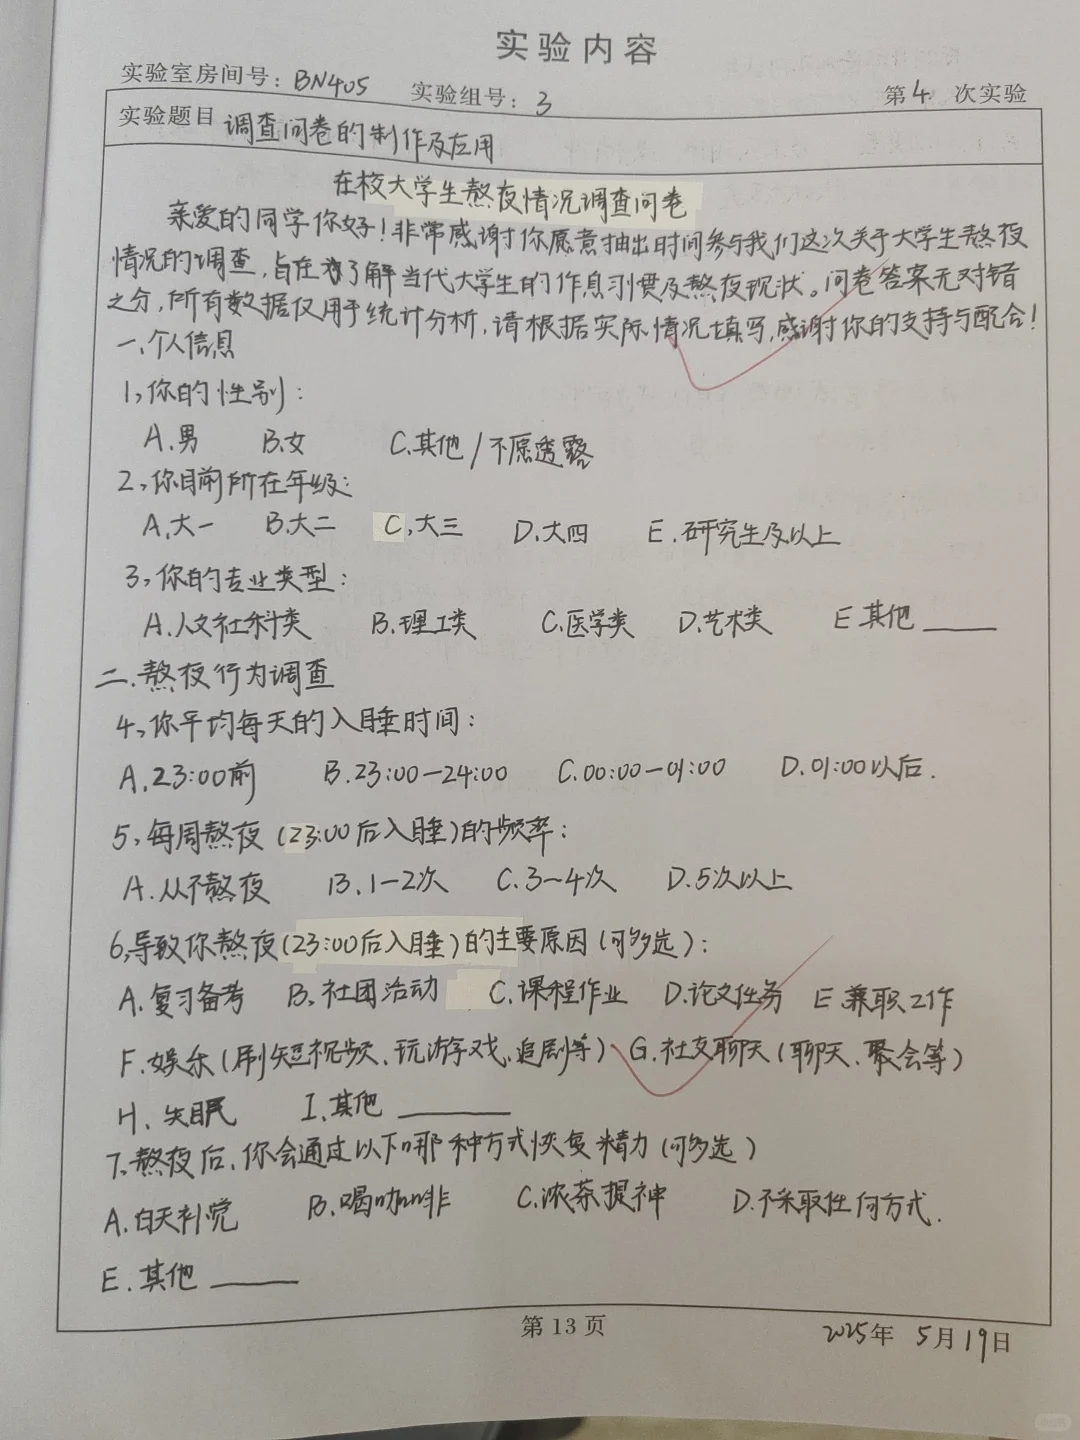 实验内容
实验室房间号：BN405 实验组号：3 第4次实验
实验题目 调查问卷的制作及应用
在校大学生熬夜情况调查问卷
亲爱的同学你好！非常感谢你愿意抽出时间参与我们这次关于大学生熬夜
情况的调查，旨在了解当代大学生的作息习惯及熬夜现状。问卷答案无对错
之分，所有数据仅用于统计分析，请根据实际情况填写，感谢你的支持与配合！
一、个人信息
1、你的性别：
A.男 B.女 C.其他/不愿透露
2、你目前所在年级：
A.大一 B.大二 C.大三 D.大四 E.研究生及以上
3、你的专业类型：
A.人文社科类 B.理工类 C.医学类 D.艺术类 E其他____
二、熬夜行为调查
4、你平均每天的入睡时间：
A.23:00前 B.23:00—24:00 C.00:00—01:00 D.01:00以后.
5、每周熬夜（23:00后入睡）的频率：
A.从不熬夜 B.1—2次 C.3~4次 D.5次以上
6、导致你熬夜（23:00后入睡）的主要原因（可多选）：
A.复习备考 B.社团活动 C.课程作业 D.论文任务 E.兼职工作
F.娱乐（刷短视频、玩游戏、追剧等） G.社交聊天（聊天、聚会等）
H.失眠 I.其他______
7、熬夜后，你会通过以下哪种方式恢复精力（可多选）
A.白天补觉 B.喝咖啡 C.浓茶提神 D.不采取任何方式.
E.其他_____
第13页
2025年5月19日